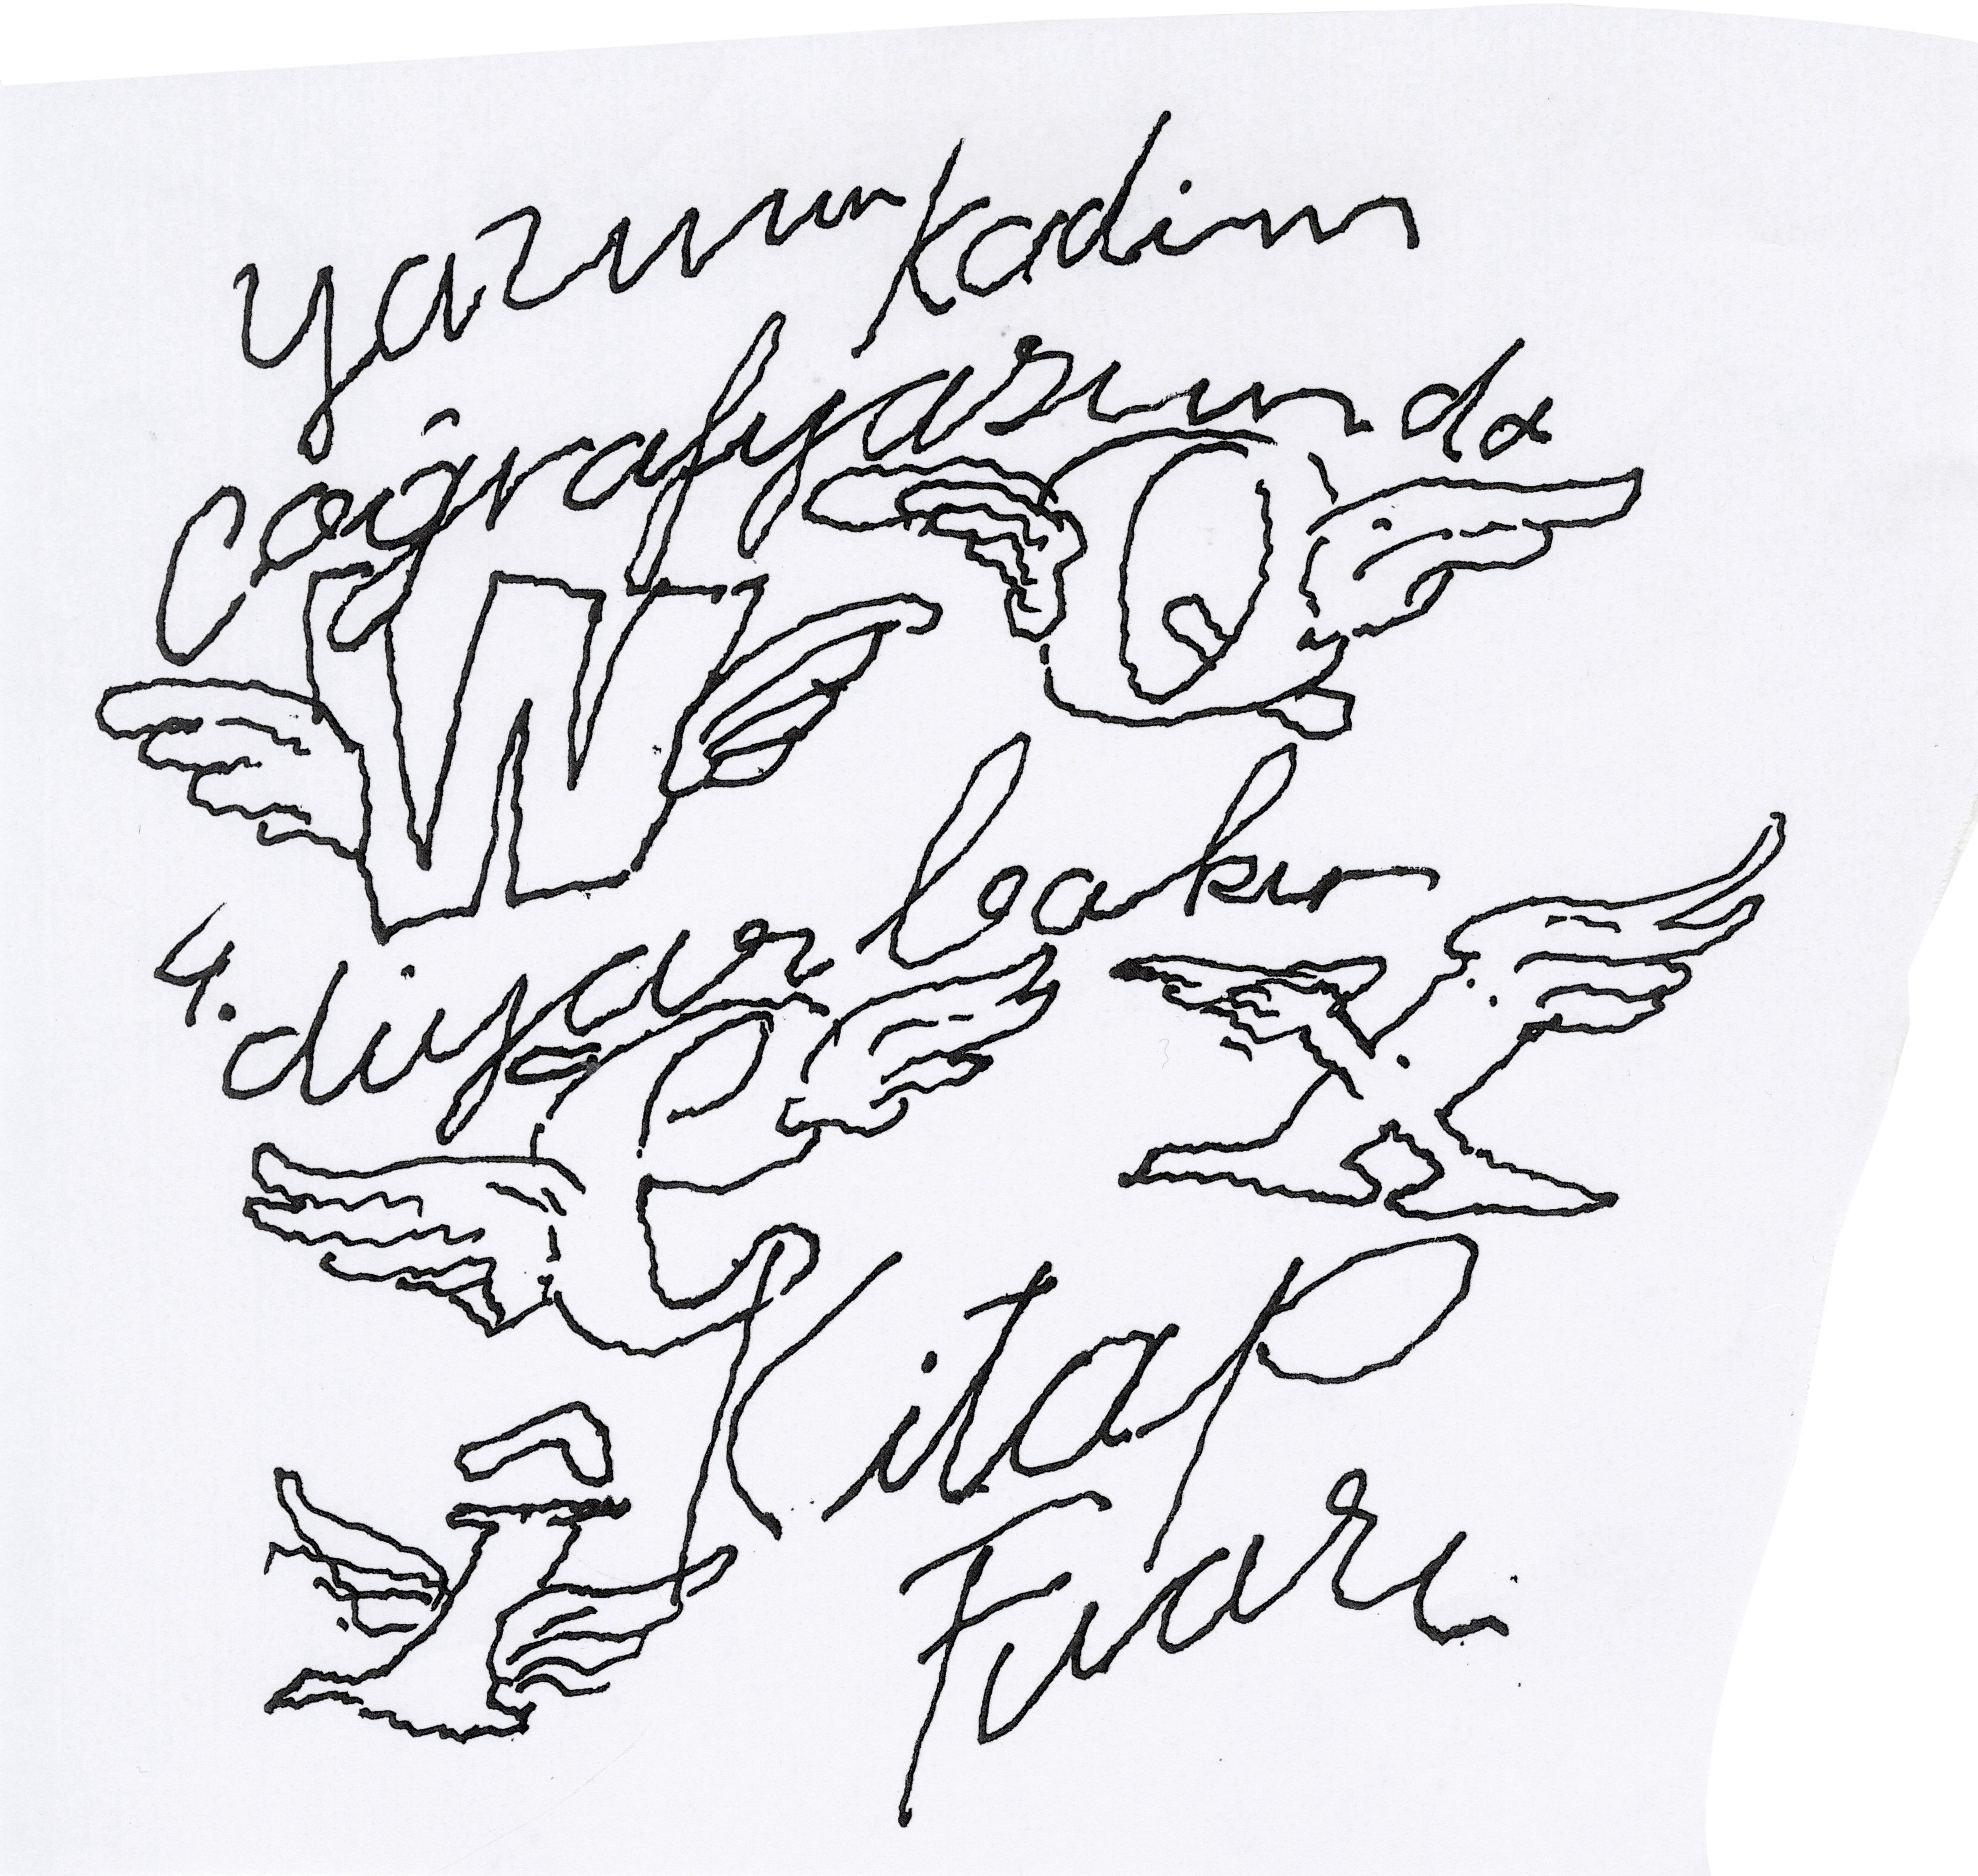 yazının kadim
coğrafyasında
4. diyarbakır
Kitap
Fuarı